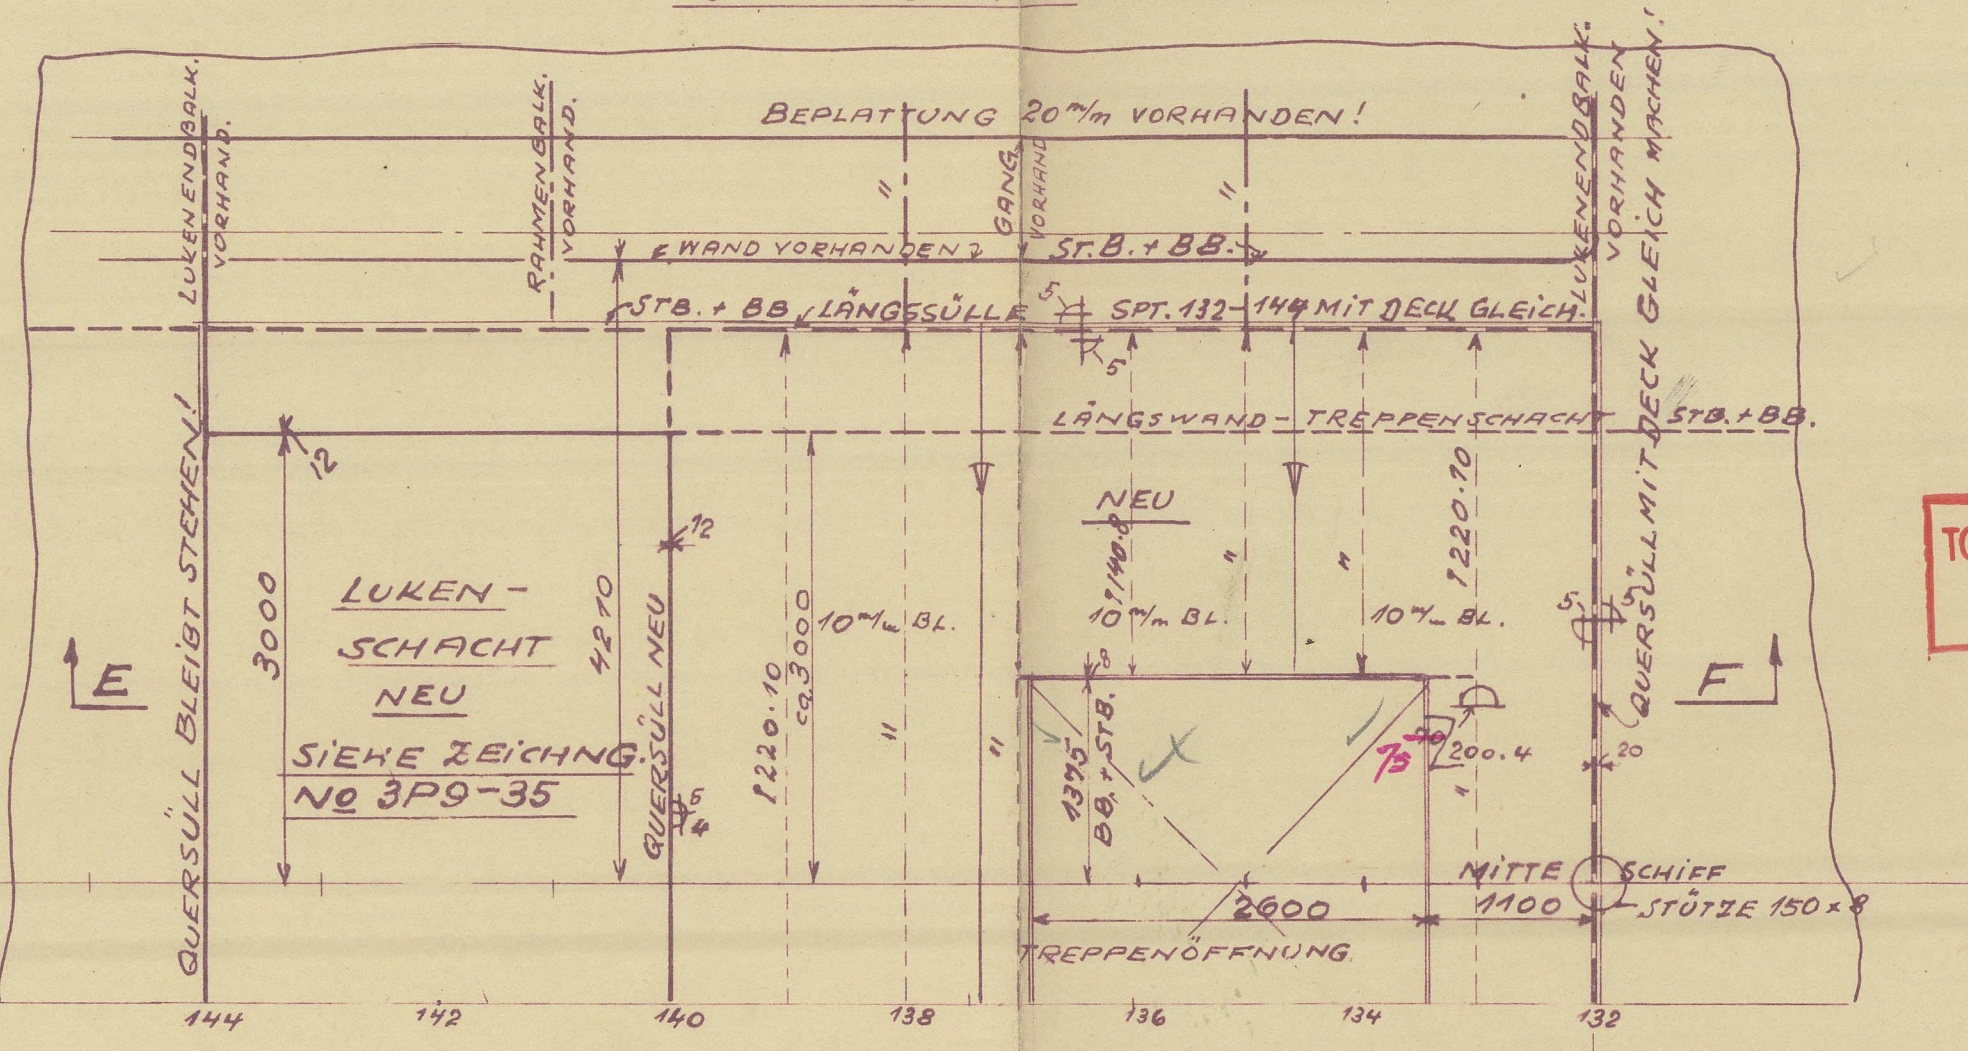 BEPLATTUNG 20 m/m VORHANDEN!
LUKENENDBALK.
VORHAND.
RAHMENBALK.
VORHAND.
"
GANG
VORHAND
"
LUKENENDBALK.
VORHANDEN
QUERSÜLL MIT DECK GLEICH MACHEN!
WAND VORHANDEN
ST.B. + BB.
STB. + BB. LÄNGSSÜLLE
5
5
SPT. 132-144 MIT DECK GLEICH.
LÄNGSWAND - TREPPENSCHACHT STB. + BB.
QUERSÜLL BLEIBT STEHEN!
12
3000
LUKEN-
SCHACHT
NEU
SIEHE ZEICHNG.
No 3P9-35
4210
QUERSÜLL NEU
12
5
4
220.10
ca. 3000
10 m/m BL.
"
"
NEU
140.8
10 m/m BL.
"
"
220.10
10 m/m BL.
5
5
8
1375
BB. + STB.
75
70
200.4
"
20
E
F
MITTE SCHIFF
STÜTZE 150 x 8
2600
1100
TREPPENÖFFNUNG
144
142
140
138
136
134
132